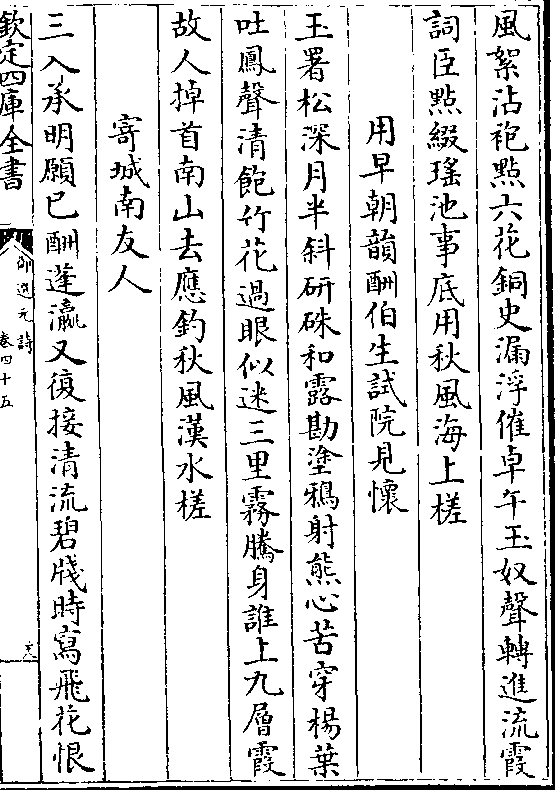 風絮沾袍㸃六花銅史漏浮催卓午玉奴聲轉進流霞
詞臣㸃綴瑤池事底用秋風海上槎
用早朝韻酬伯生試院見懷
玉署松深月半斜研硃和露勘塗鴉射熊心苦穿楊葉
吐鳳聲清飽竹花過眼似迷三里霧騰身誰上九層霞
故人掉首南山去應釣秋風漢水槎
寄城南友人
三入承明願已酬蓬瀛又復接清流碧牋時寫飛花恨
欽定四庫全書
御選元詩
卷四十五